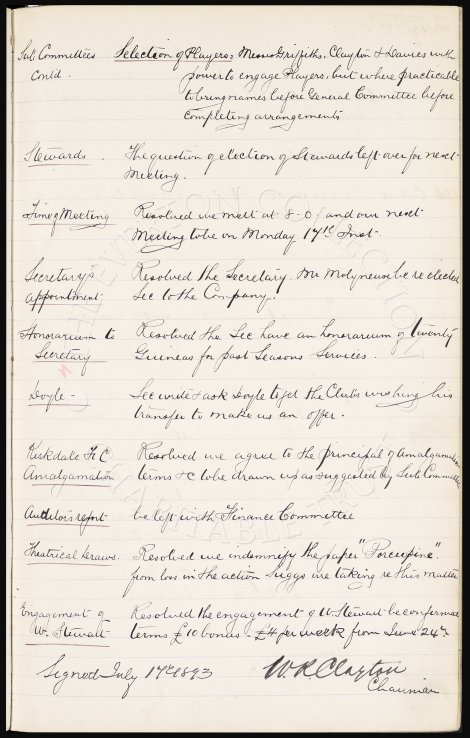 Sub Committees Selection of Players: Messrs Griffiths, Clayton & Davies with
Contd. power to engage Players, but where practicable
to bring names before General Committee before
completing arrangements
Stewards. The question of election of Stewards left over for next
Meeting.
Time of Meeting Resolved we meet at 8-0 and our next
Meeting to be on Monday 17th Inst.
Secretary's Resolved the Secretary. Mr Molyneux be re elected
appointment Sec to the Company.
Honorarium to Resolved the Sec have an honorarium of twenty
Secretary Guineas for past Seasons Services.
Doyle - Sec write & ask Doyle to get the Clubs wishing his
transfer to make us an offer.
Kirkdale F.C Resolved we agree to the principal of Amalgamation
Amalgamation terms &c to be drawn up as suggested by Sub Committee
Auditors report be left with Finance Committee
Theatrical Draws. Resolved we indemnify the paper "Porcupine"
from loss in the action Suggs are taking re this matter
Engagement of Resolved the engagement of W. Stewart be confirmed
W. Stewart terms £10 bonus. £4 per week from June 24th
Signed July 17th 1893 W.R. Clayton
Chairman